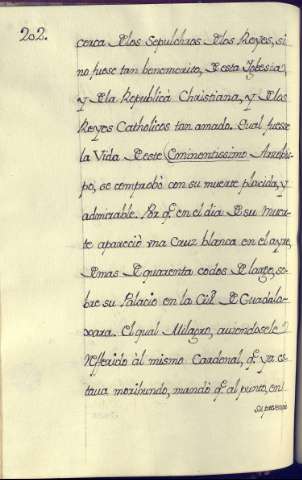 202.
cerca Delos Sepulchros Delos Reyes, si
no fuese tan benemerito, De esta Iglesia,
y Dela Republica Christiana, y Delos
Reyes Catholicos tan amado. Qual fuese
la Vida Deste Eminentissimo Arzobis
po, se comprobò con su muerte placida, y
admirable. Por q̃ en el dia De su muer-
te apareciò vna Cruz blanca en el ayre,
De mas De quarenta codos De largo, so-
bre su Palacio en la Ciũd. De Guadala-
xara. El qual Milagro, auiendosele
referido àl mismo Cardenal, q̃ ya es-
taua moribundo, mandò q̃ al punto, en